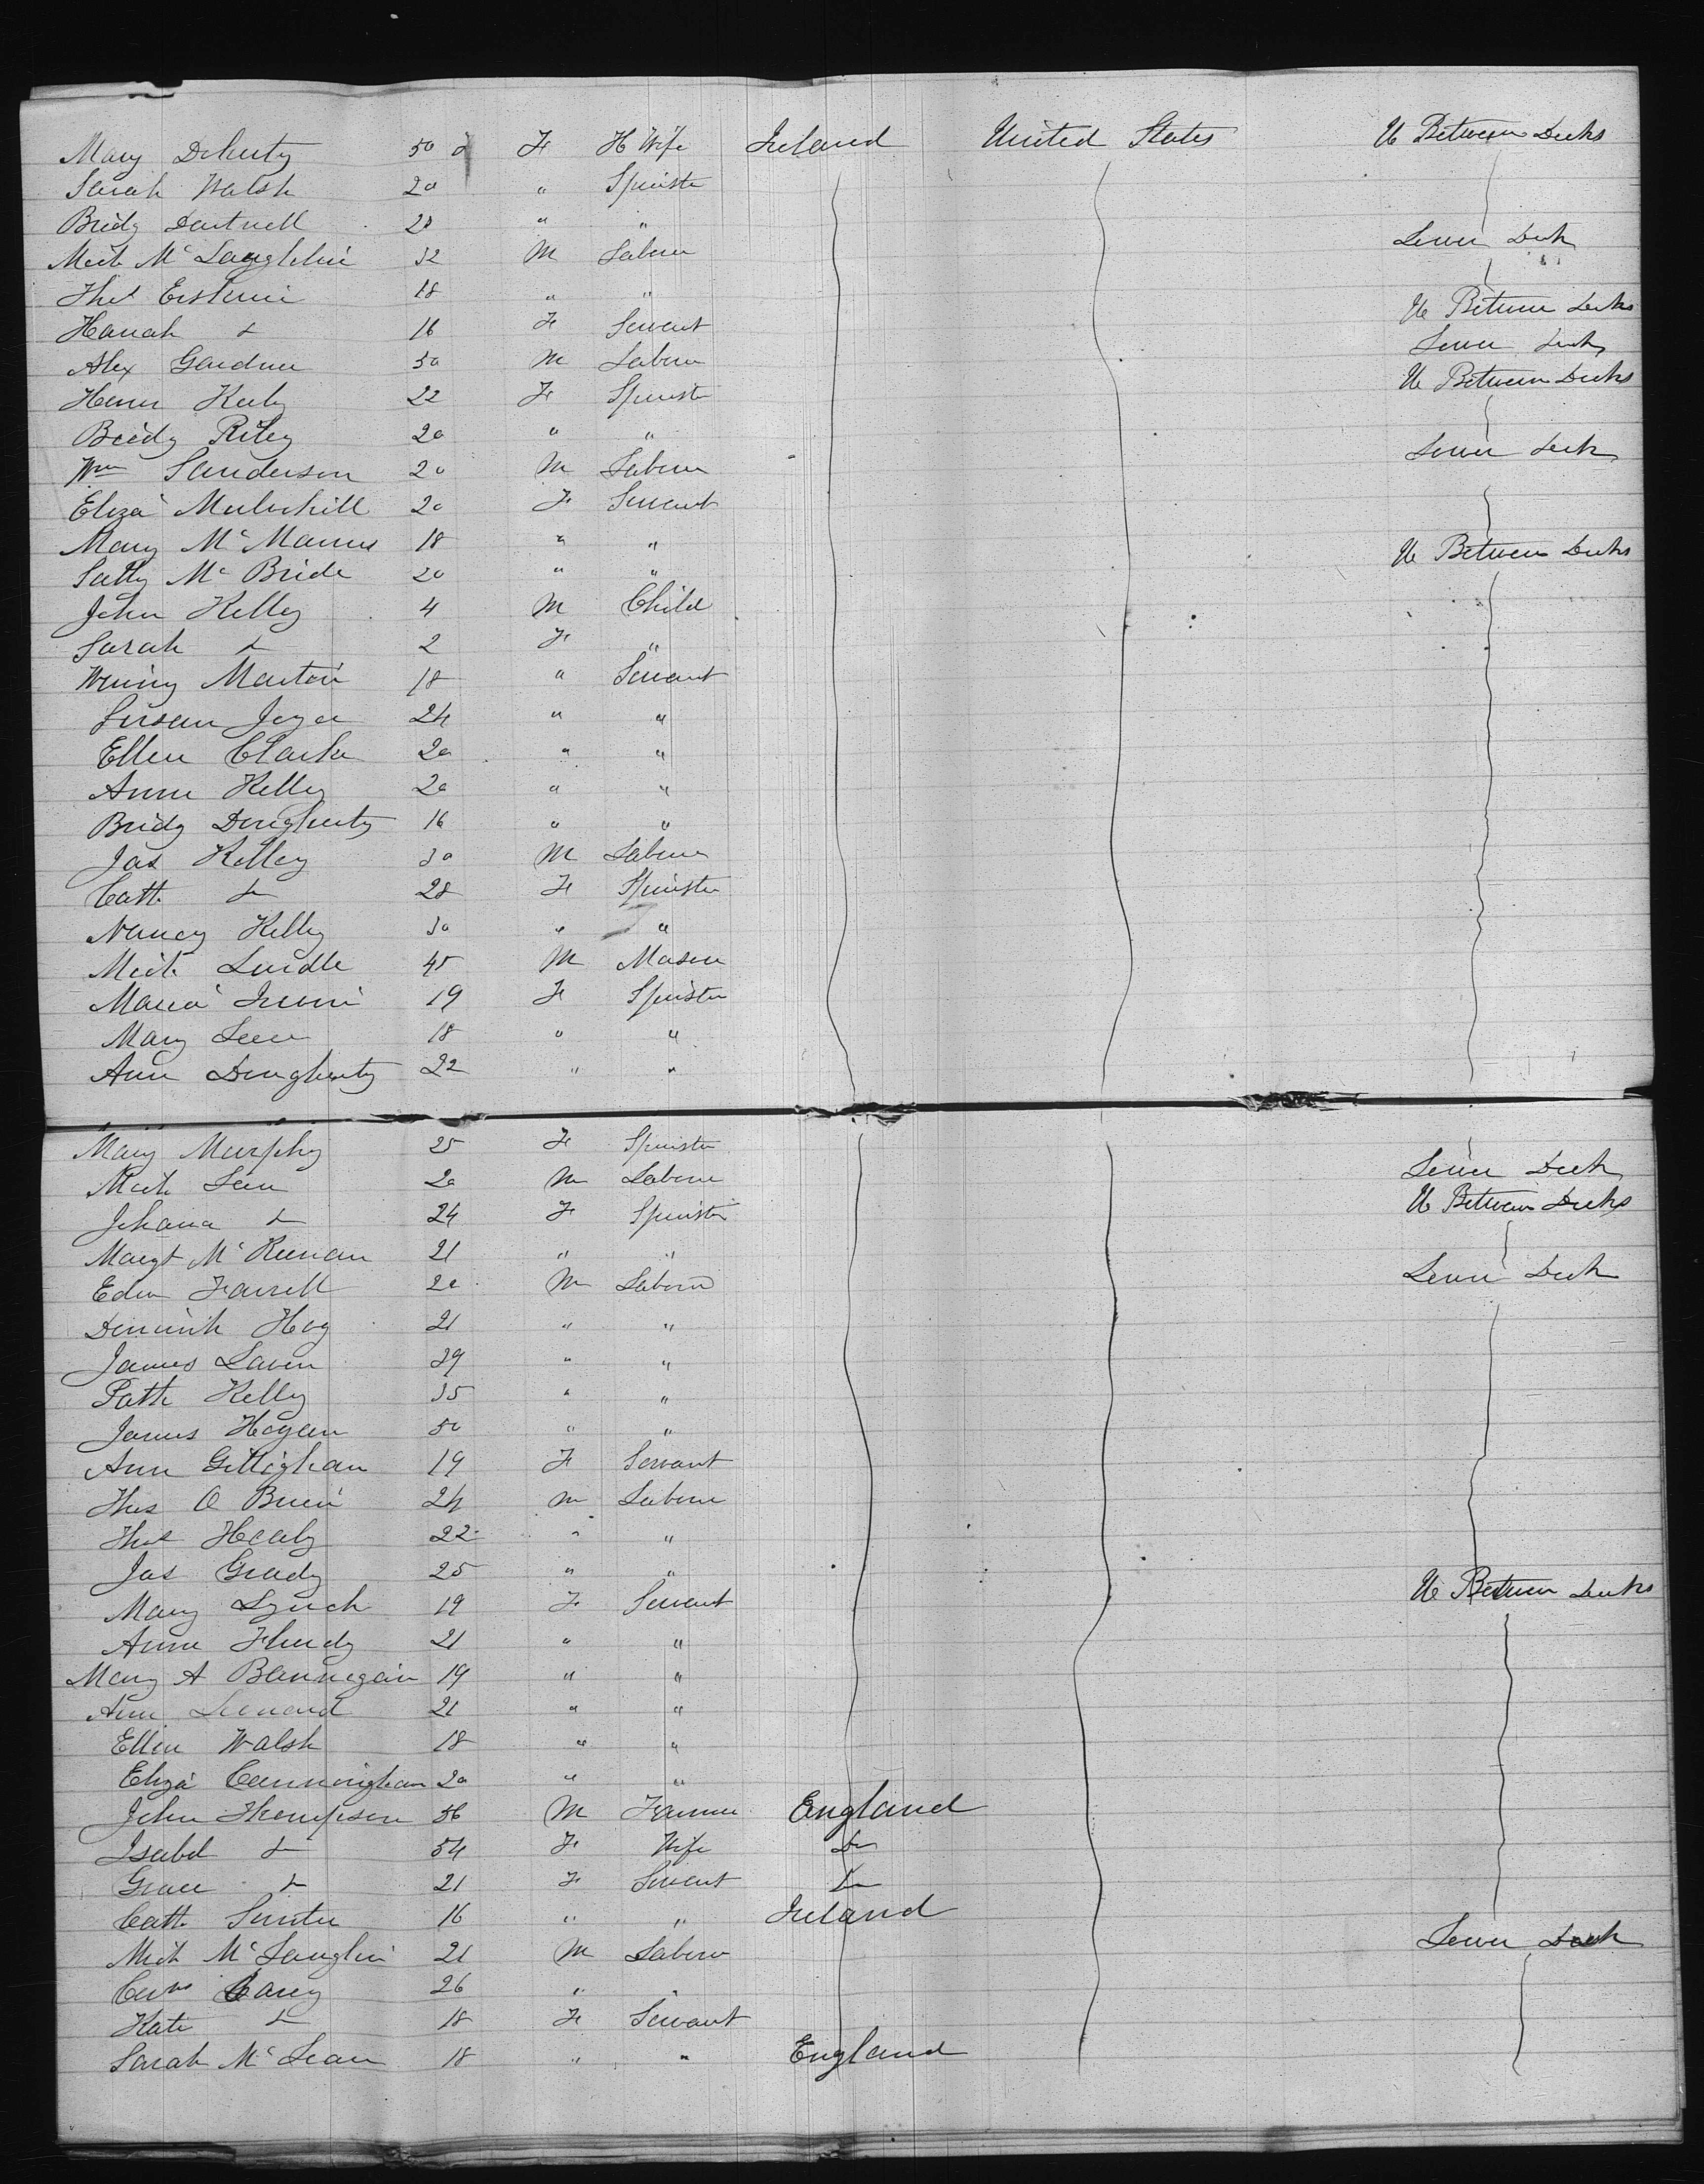 Mary Doherty 50 F H Wife Ireland United States U Between Decks
Sarah Walsh 20 " Spinster
Bridg Dartnell 28 " "
Mich McLaughlin 32 M Laborer Lower Deck
Thos Erskine 18 " "
Hanah Do 16 F Servant U Between Decks
Alex Gardner 30 M Laborer Lower Deck
Keely 22 F Spinster U Between Decks
Bridg Riley 20 " "
Wm Sanderson 20 M Laborer Lower Deck
Eliza Mulvihill 20 F Servant
Mary McManus 18 " "
Sally McBride 20 " " U Between Decks
John Kelley 4 M Child
Sarah Do 2 F "
Winny Martin 18 " Servant
Susan Joyce 24 " "
Ellen Clarke 20 " "
Anne Kelley 20 " "
Bridg Dougherty 16 " "
Jas Kelley 30 M Laborer
Cath Do 28 F Spinster
Nancy Kelley 30 " "
Mich 45 M Mason
Maria Irwin 19 F Spinster
Mary 18 " "
Ann Dougherty 22 " "
Mary Murphy 25 F Spinster
Mich 20 M Laborer Lower Deck
Johana Do 24 F Spinster U Between Decks
Margt McKeenan 21 " "
Edw Farrell 20 M Laborer Lower Deck
Dominik Hoy 21 " "
James Laven 39 " "
Patk Kelley 35 " "
James Hogan 50 " "
Ann Gilligham 19 F Servant
Thos O Brien 24 M Laborer
Thos Healy 22 " "
Jas Grady 25 " "
Mary Lynch 19 F Servant U Between Decks
Anne 21 " "
Mary A Bannegan 19 " "
Ann Leonard 21 " "
Ellen Walsh 18 " "
Eliza Cunningham 20 " "
John Thompson 56 M Farmer England
Isabel Do 54 F Wife Do
Grace Do 21 F Servant Do
Cath 16 " " Ireland
Mich McLauglin 21 M Laborer Lower Deck
Carey 26 " "
Kate Do 18 F Servant
Sarah McLean 18 " " England